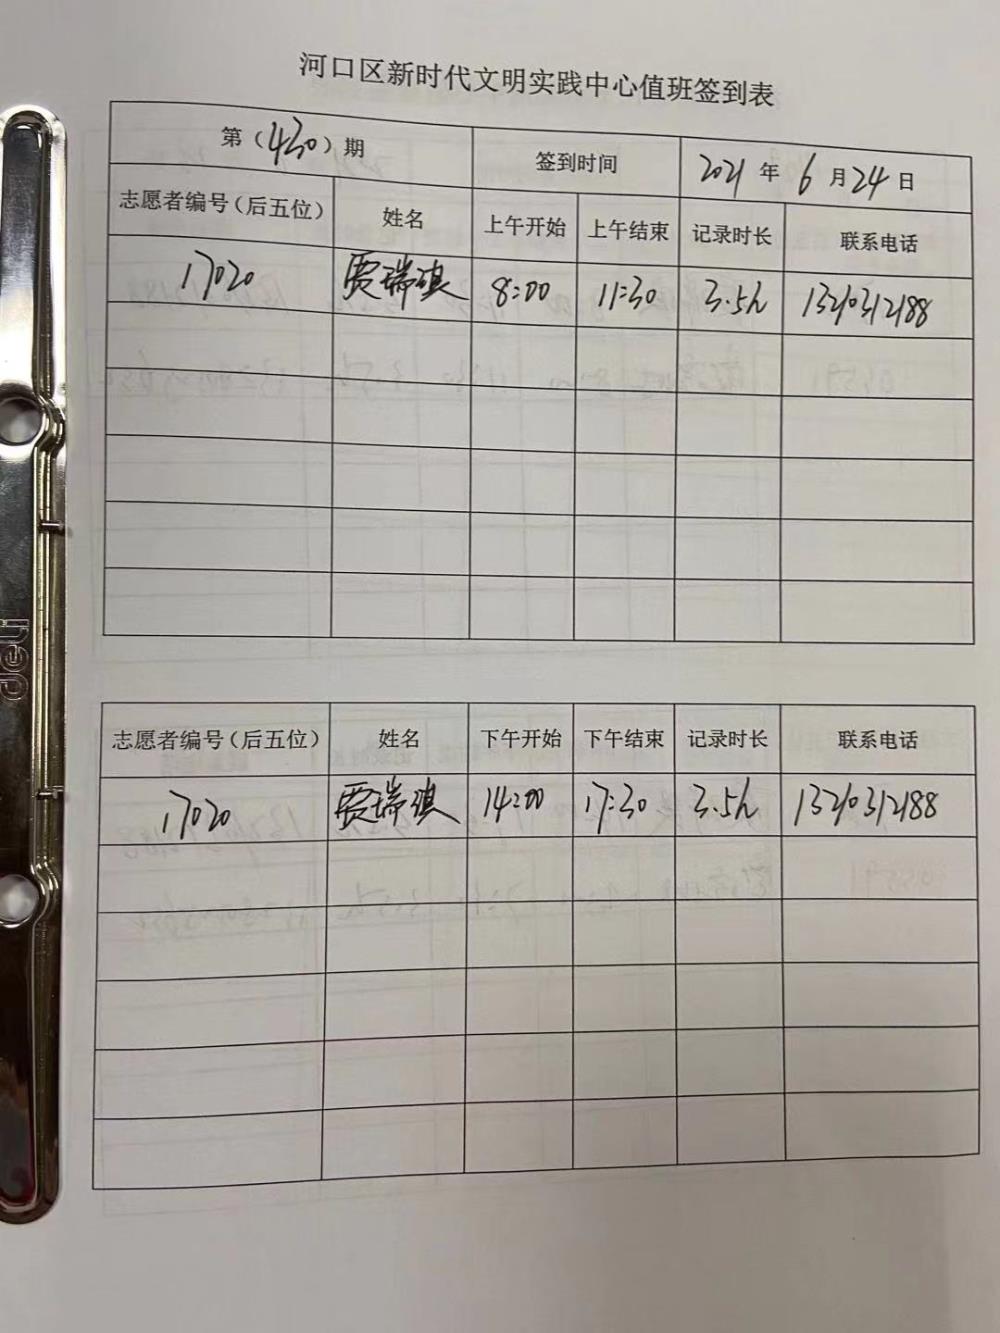 河口区新时代文明实践中心值班签到表
第（430）期 签到时间 2021 年 6 月 24 日
志愿者编号（后五位） 姓名 上午开始 上午结束 记录时长 联系电话
17020 贾瑞琪 8:00 11:30 3.5h 13210312188
志愿者编号（后五位） 姓名 下午开始 下午结束 记录时长 联系电话
17020 贾瑞琪 14:00 17:30 3.5h 13210312188
deli